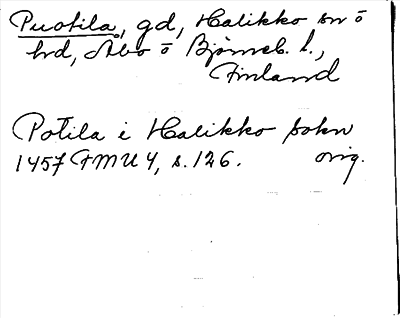 Puotila, gd, Halikko sn o
hd, Åbo o Björneb. l.,
Finland
Potila i Halikko sokn
1457 FMU 4, s. 126. orig.